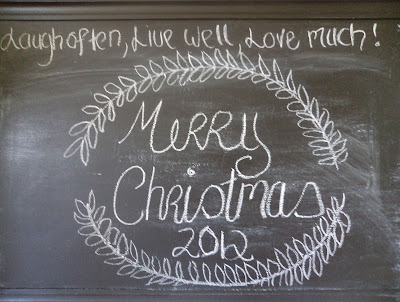 Laugh often, Live Well, Love much!
Merry
Christmas
2012